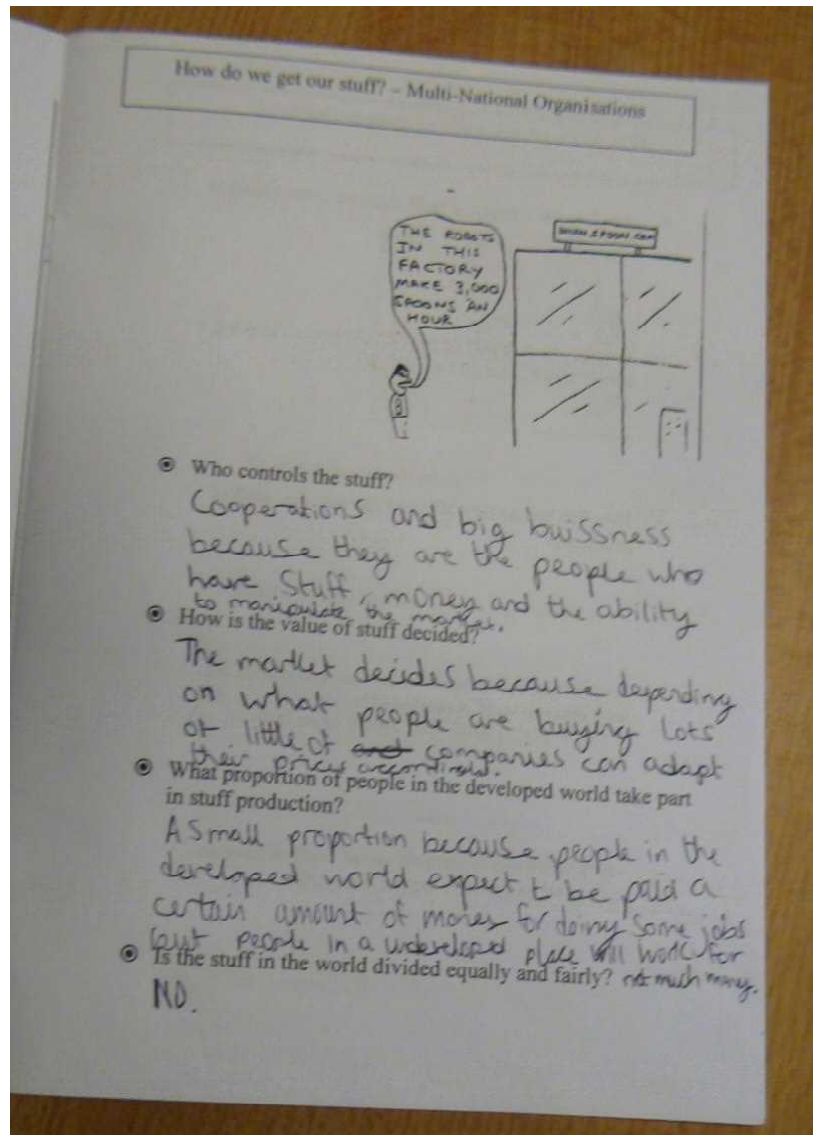 How do we get our stuff? – Multi-National Organisations
THE ROBOTS
IN THIS
FACTORY
MAKE 3,000
SPOONS AN
HOUR
Who controls the stuff?
Cooperations and big buissness
because they are the people who
have Stuff, money and the ability
to manipulate the market.
How is the value of stuff decided?
The market decides because depending
on what people are buying lots
or little of and companies can adapt
their prices accordingly.
What proportion of people in the developed world take part
in stuff production?
A small proportion because people in the
developed world expect t be paid a
certain amount of money for doing some jobs
but people in a undeveloped place will work for
Is the stuff in the world divided equally and fairly? not much money.
NO.